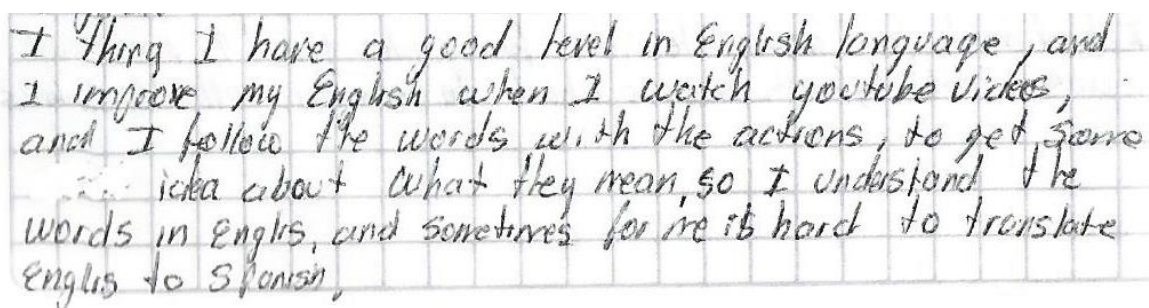 I thing I have a good level in English language, and
I improve my English when I watch youtube videos,
and I follow the words with the actions, to get some
idea about what they mean, so I understand the
words in Englis, and sometimes for me is hard to translate
Englis to Spanish,